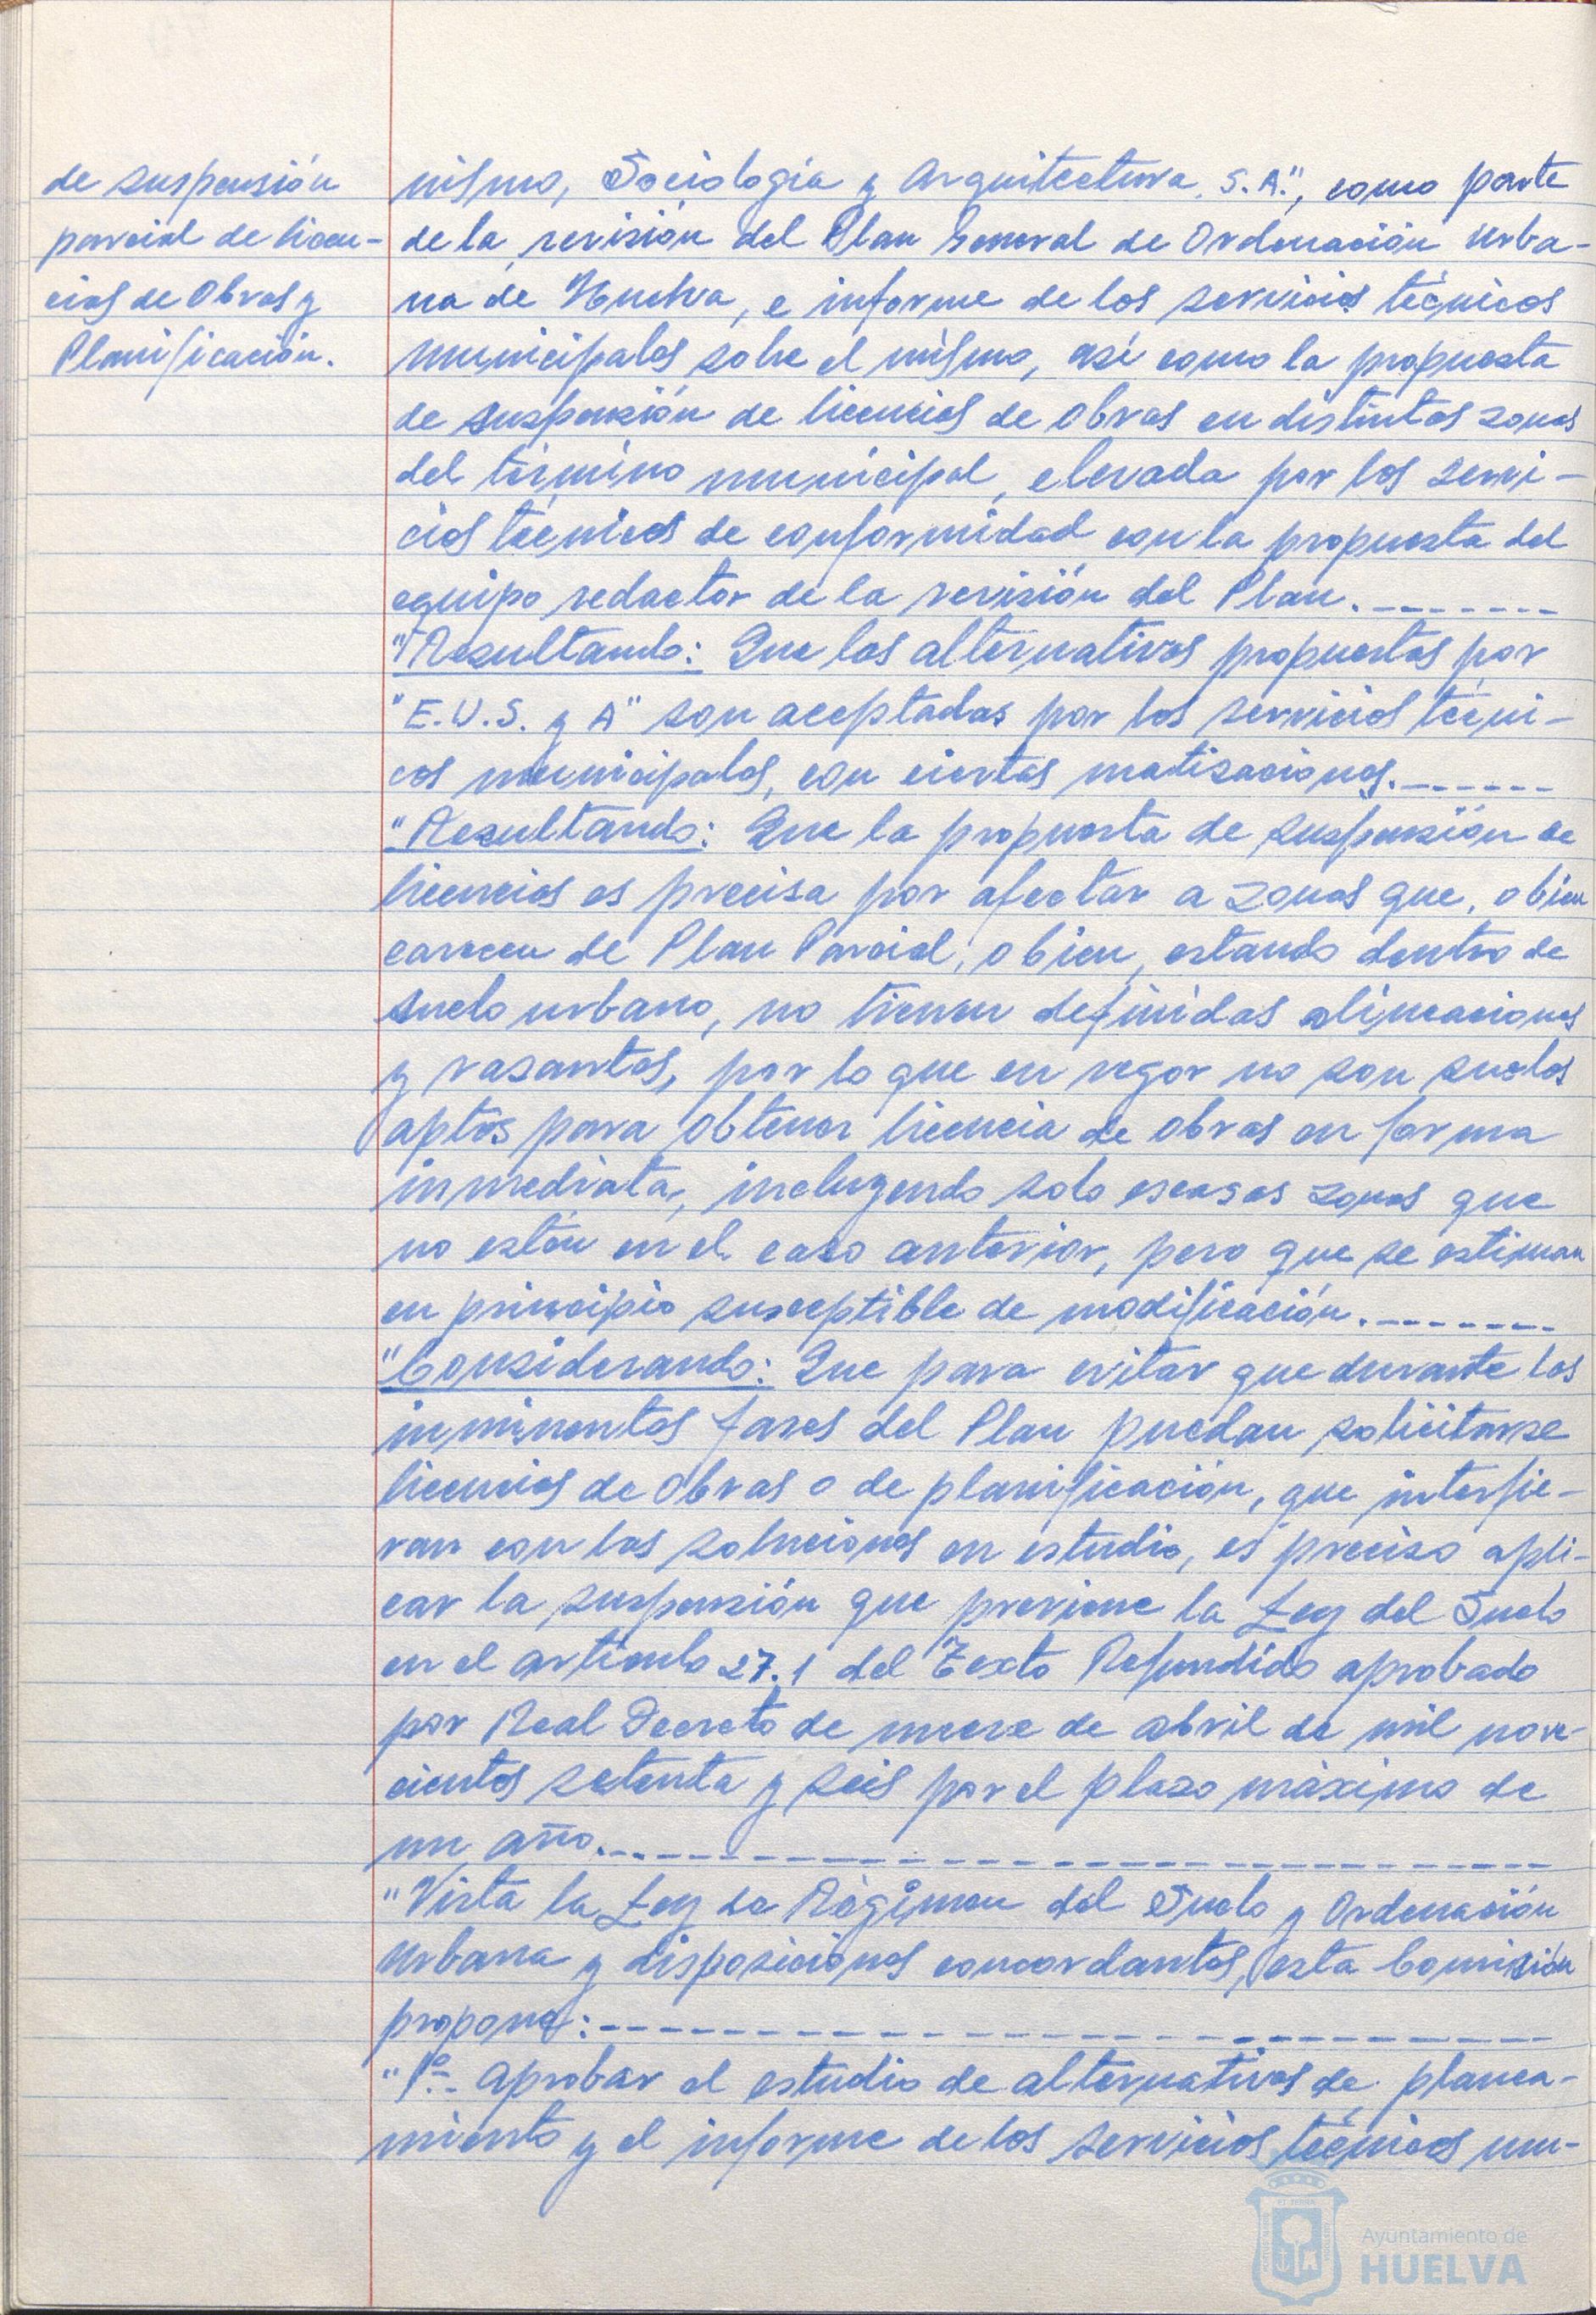 de suspensión
parcial de licen-
cias de Obras y
Planificación.
nismo, Sociología y Arquitectura, S.A.", como parte
de la revisión del Plan General de Ordenación Urba-
na de Huelva, e informe de los servicios técnicos
municipales sobre el mismo, así como la propuesta
de suspensión de licencias de Obras en distintas zonas
del término municipal, elevada por los servi-
cios técnicos de conformidad con la propuesta del
equipo redactor de la revisión del Plan.-------
"Resultando: Que las alternativas propuestas por
"E.U.S. y A" son aceptadas por los servicios técni-
cos municipales, con ciertas matizaciones.------
"Resultando: Que la propuesta de suspensión de
licencias es precisa por afectar a zonas que, o bien
carecen de Plan Parcial, o bien, estando dentro de
suelo urbano, no tienen definidas alineaciones
y rasantes, por lo que en rigor no son suelos
aptos para obtener licencia de obras en forma
inmediata, incluyendo solo escasas zonas que
no están en el caso anterior, pero que se estiman
en principio susceptible de modificación.-------
"Considerando: Que para evitar que durante las
inminentes fases del Plan puedan solicitarse
licencias de Obras o de planificación, que interfie-
ran con las soluciones en estudio, es preciso apli-
car la suspensión que previene la Ley del Suelo
en el artículo 27.1 del Texto Refundido aprobado
por Real Decreto de nueve de abril de mil nove-
cientos setenta y seis por el plazo máximo de
un año.------------------
"Vista la Ley de Régimen del Suelo y Ordenación
Urbana y disposiciones concordantes, esta Comisión
propone:------------------
"1º.- Aprobar el estudio de alternativas de planea-
miento y el informe de los servicios técnicos mu-
Ayuntamiento de
HUELVA